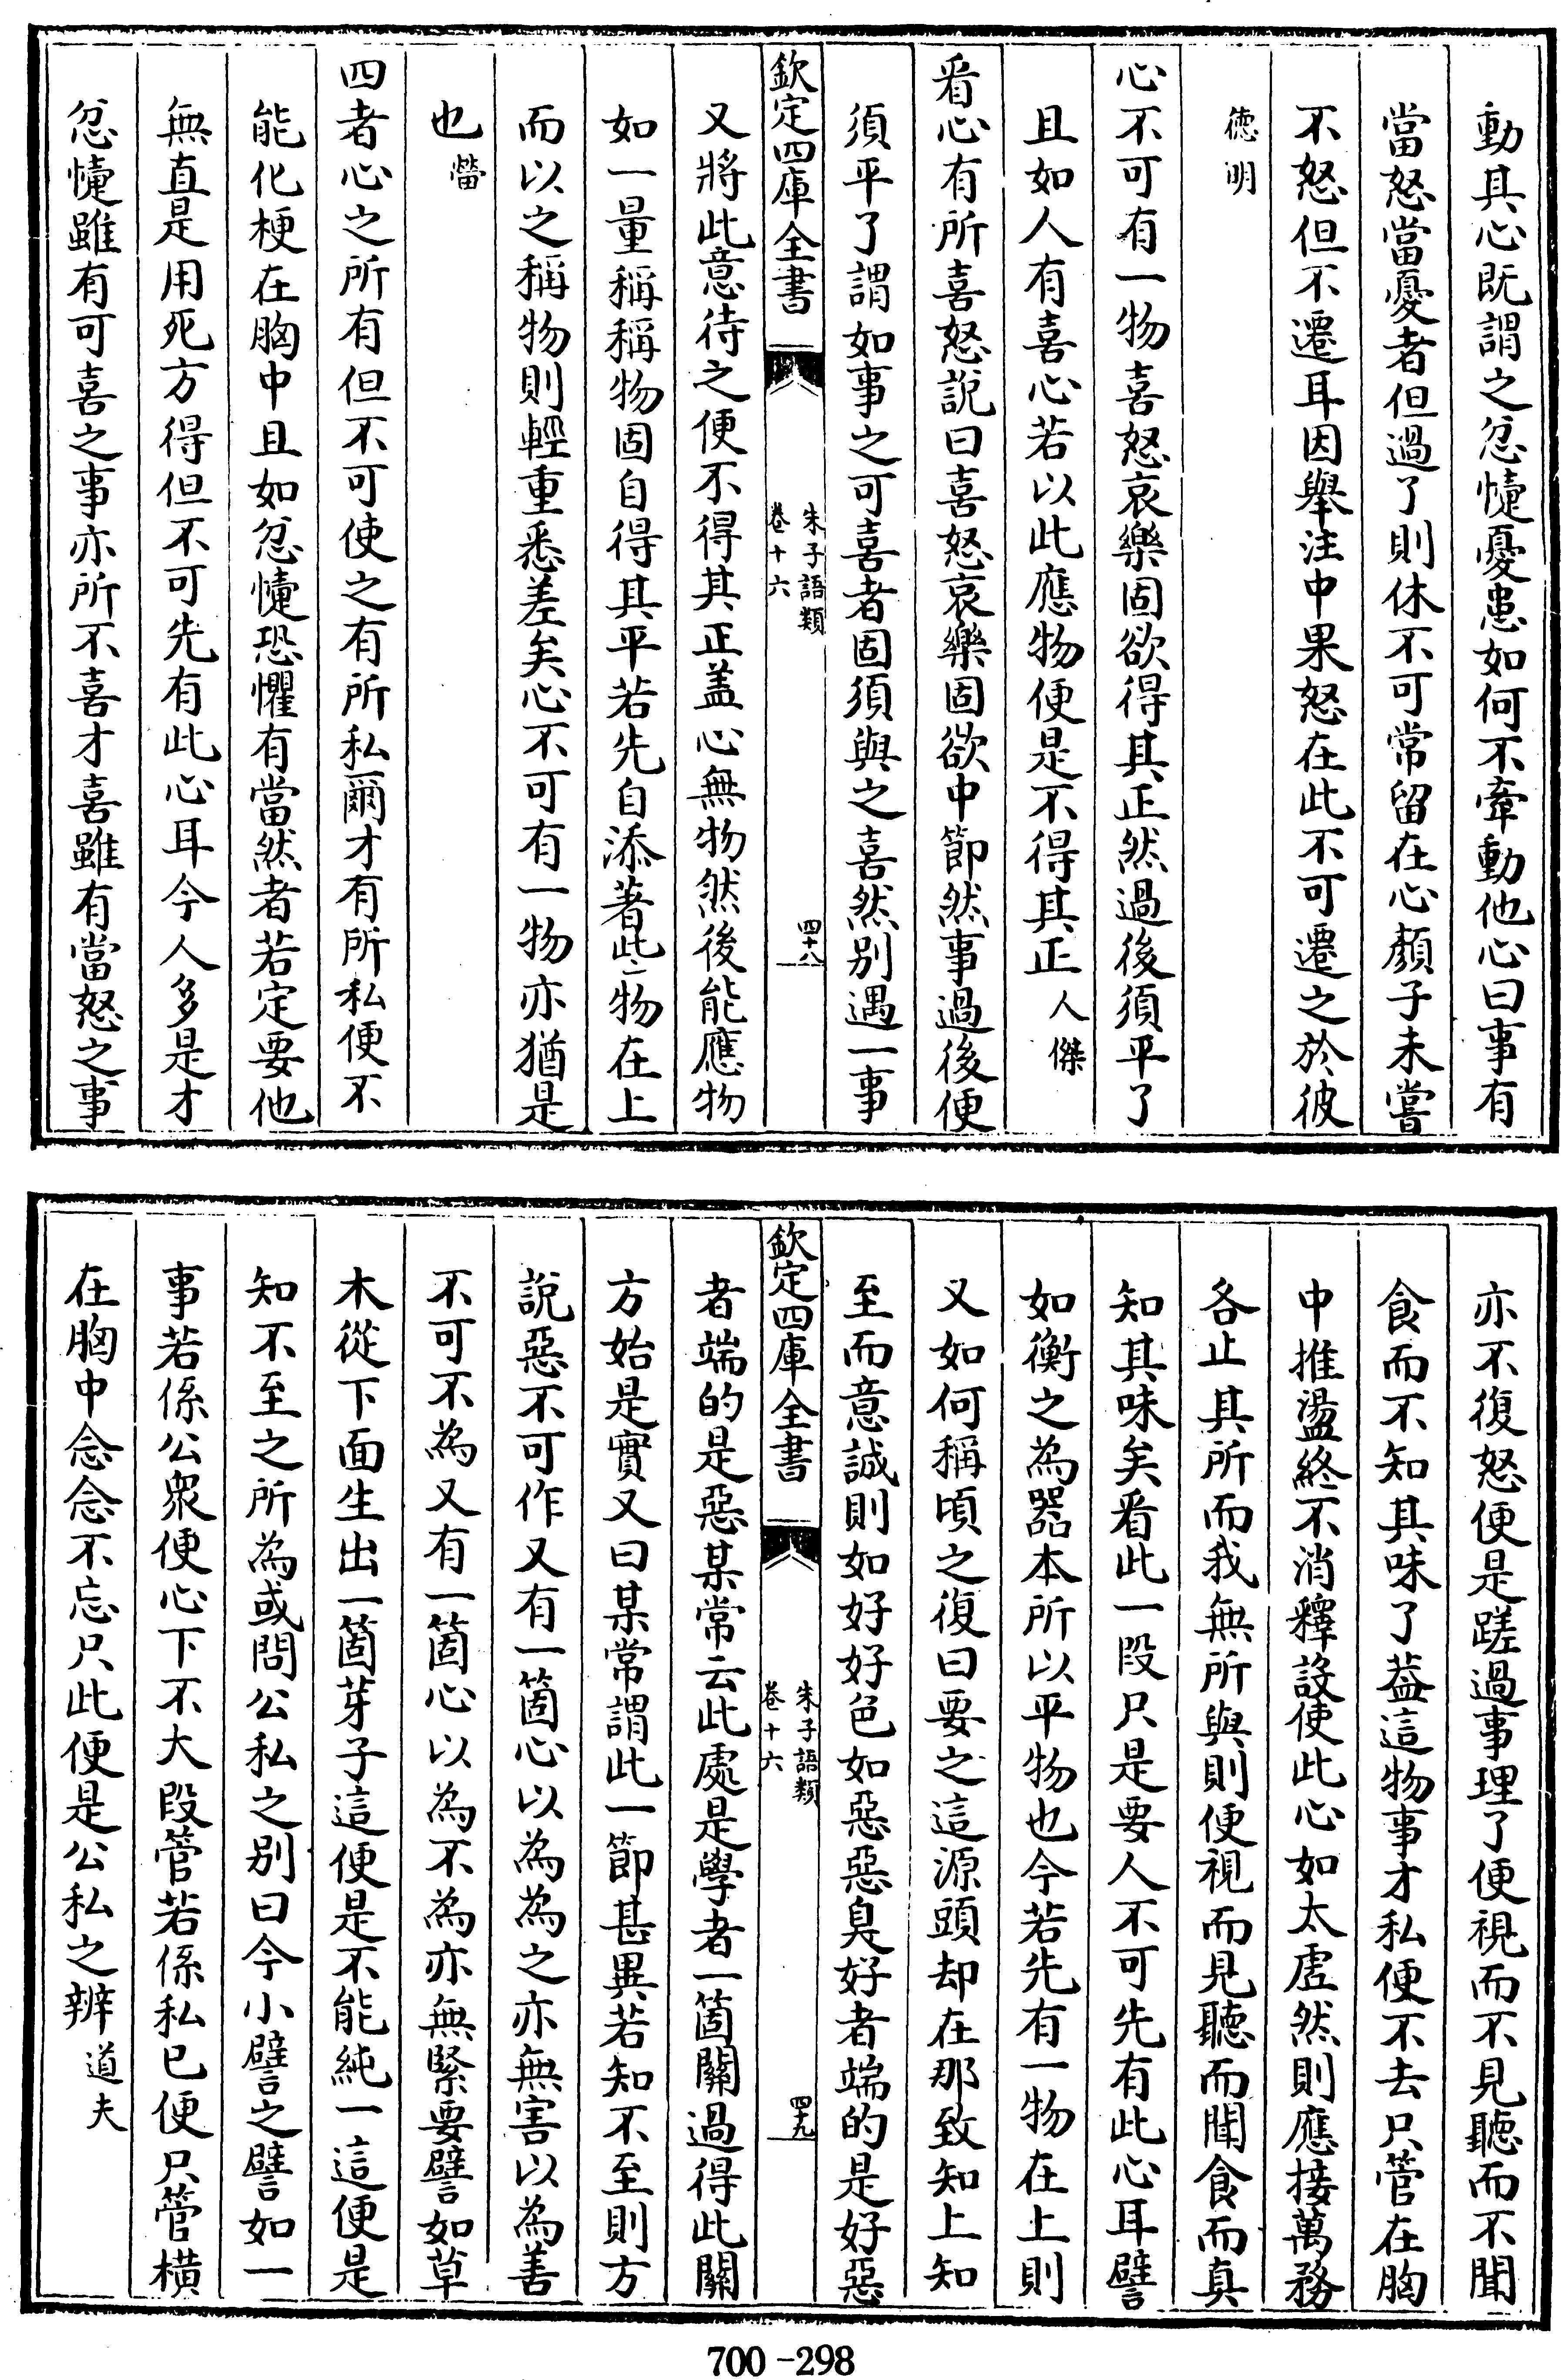 動其心既謂之忿懥憂患如何不牽動他心曰事有
當怒當憂者但過了則休不可常留在心顏子未嘗
不怒但不遷耳因舉注中果怒在此不可遷之於彼
德明
心不可有一物喜怒哀樂固欲得其正然過後須平了
且如人有喜心若以此應物便是不得其正人傑
看心有所喜怒說曰喜怒哀樂固欲中節然事過後便
須平了謂如事之可喜者固須與之喜然別遇一事
欽定四庫全書
朱子語類
卷十六
四十八
又將此意待之便不得其正盖心無物然後能應物
如一量稱稱物固自得其平若先自添著些物在上
而以之稱物則輕重悉差矣心不可有一物亦猶是
也㽦
四者心之所有但不可使之有所私爾才有所私便不
能化梗在胸中且如忿懥恐懼有當然者若定要他
無直是用死方得但不可先有此心耳今人多是才
忿懥雖有可喜之事亦所不喜才喜雖有當怒之事
亦不復怒便是蹉過事理了便視而不見聽而不聞
食而不知其味了葢這物事才私便不去只管在胸
中推盪終不消釋設使此心如太虛然則應接萬務
各止其所而我無所與則便視而見聽而聞食而真
知其味矣看此一段只是要人不可先有此心耳譬
如衡之為器本所以平物也今若先有一物在上則
又如何稱頃之復曰要之這源頭却在那致知上知
至而意誠則如好好色如惡惡臭好者端的是好惡
欽定四庫全書
朱子語類
卷十六
四十九
者端的是惡某常云此處是學者一箇關過得此關
方始是實又曰某常謂此一節甚異若知不至則方
說惡不可作又有一箇心以為為之亦無害以為善
不可不為又有一箇心以為不為亦無緊要譬如草
木從下面生出一箇芽子這便是不能純一這便是
知不至之所為或問公私之別曰今小譬之譬如一
事若係公衆便心下不大段管若係私己便只管横
在胸中念念不忘只此便是公私之辨道夫
700-298